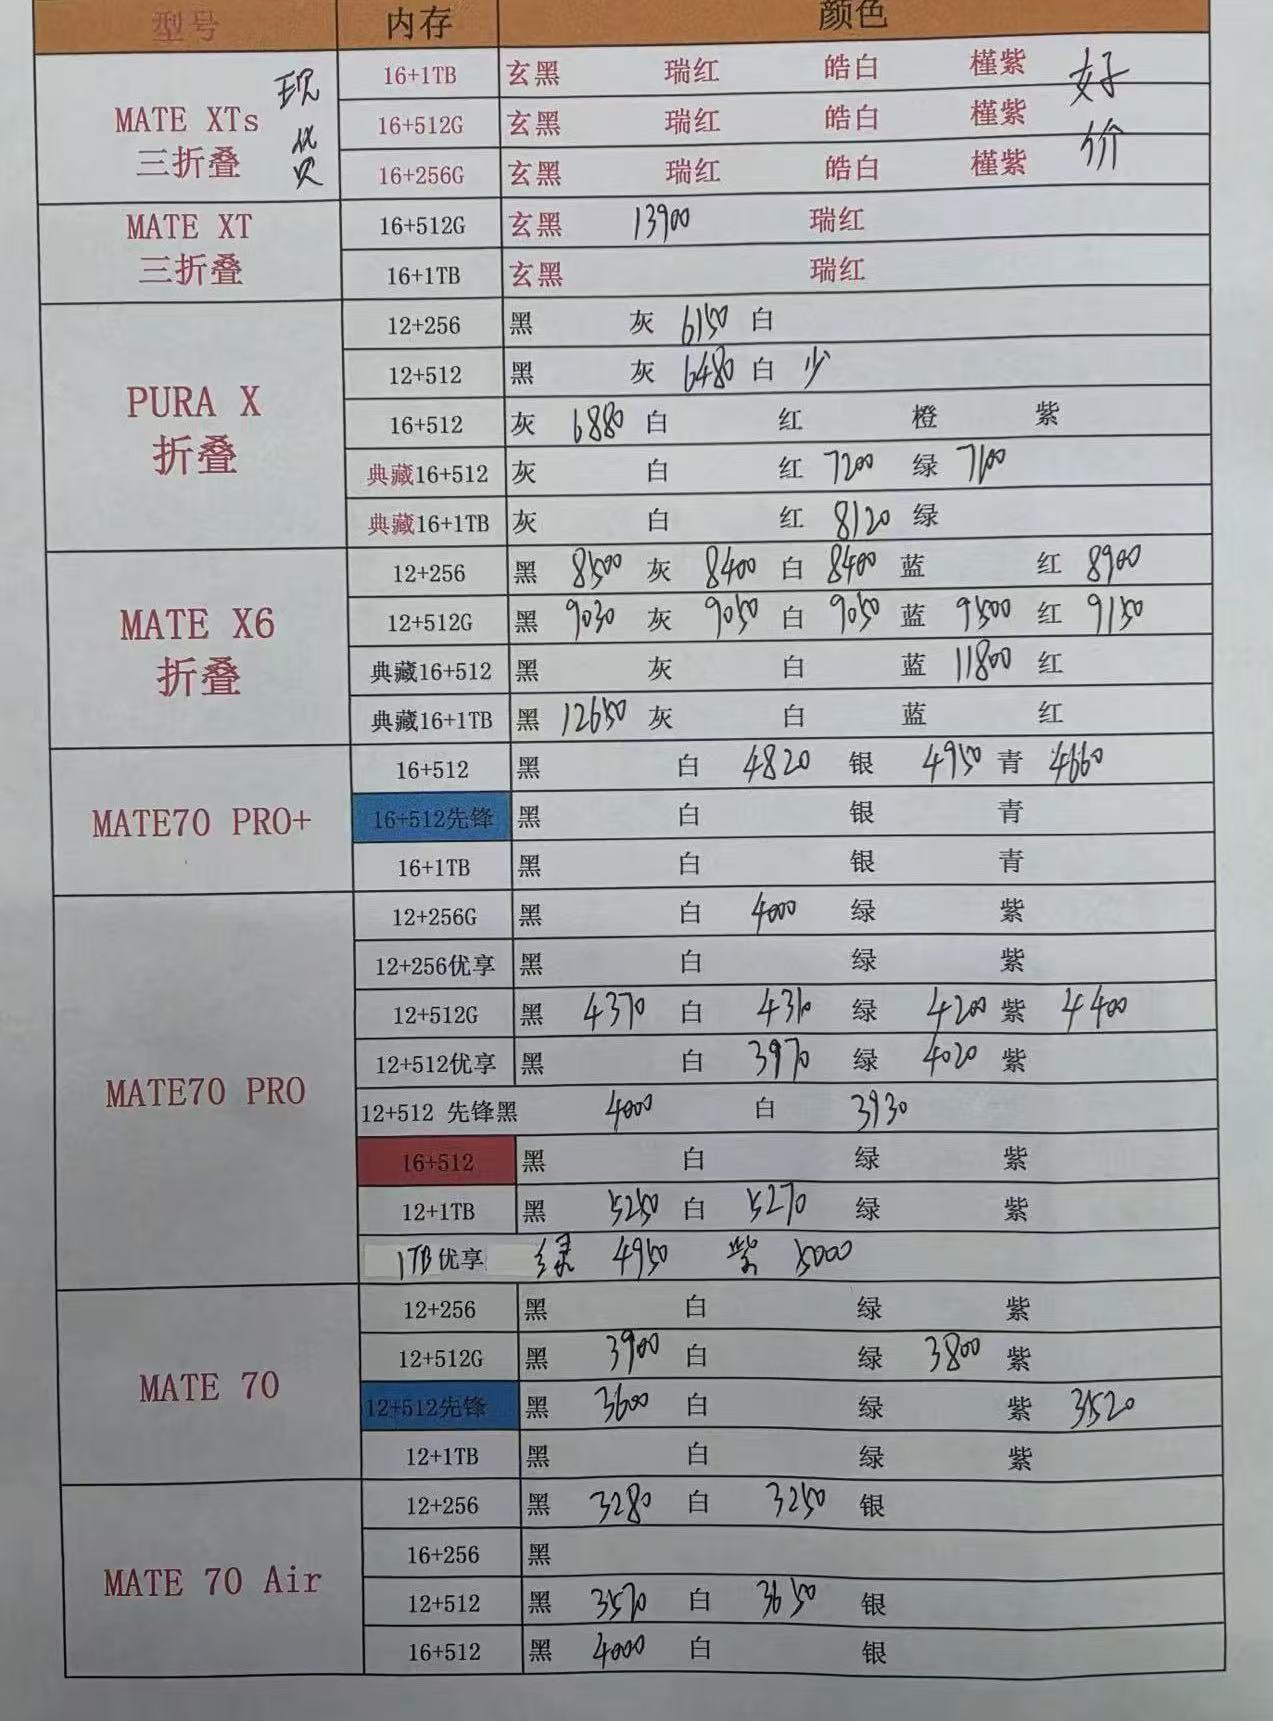 型号 内存 颜色
16+1TB 玄黑 瑞红 皓白 槿紫
MATE XTs 三折叠 现货 16+512G 玄黑 瑞红 皓白 槿紫 好价
16+256G 玄黑 瑞红 皓白 槿紫
MATE XT 三折叠 16+512G 玄黑 13900 瑞红
16+1TB 玄黑 瑞红
12+256 黑 灰 6150 白
12+512 黑 灰 6480 白 少
PURA X 折叠 16+512 灰 6880 白 红 橙 紫
典藏16+512 灰 白 红 7200 绿 7100
典藏16+1TB 灰 白 红 8120 绿
12+256 黑 8500 灰 8400 白 8400 蓝 红 8900
MATE X6 折叠 12+512G 黑 9030 灰 9050 白 9050 蓝 9500 红 9150
典藏16+512 黑 灰 白 蓝 11800 红
典藏16+1TB 黑 12650 灰 白 蓝 红
16+512 黑 白 4820 银 4950 青 4660
MATE70 PRO+ 16+512先锋 黑 白 银 青
16+1TB 黑 白 银 青
12+256G 黑 白 4000 绿 紫
12+256优享 黑 白 绿 紫
12+512G 黑 4370 白 4310 绿 4200 紫 4400
12+512优享 黑 白 3970 绿 4020 紫
MATE70 PRO 12+512 先锋黑 4000 白 3930
16+512 黑 白 绿 紫
12+1TB 黑 5250 白 5270 绿 紫
1TB优享 绿 4950 紫 5000
12+256 黑 白 绿 紫
12+512G 黑 3900 白 绿 3800 紫
MATE 70 12+512先锋 黑 3600 白 绿 紫 3520
12+1TB 黑 白 绿 紫
12+256 黑 3280 白 3250 银
16+256 黑
MATE 70 Air 12+512 黑 3570 白 3650 银
16+512 黑 4000 白 银